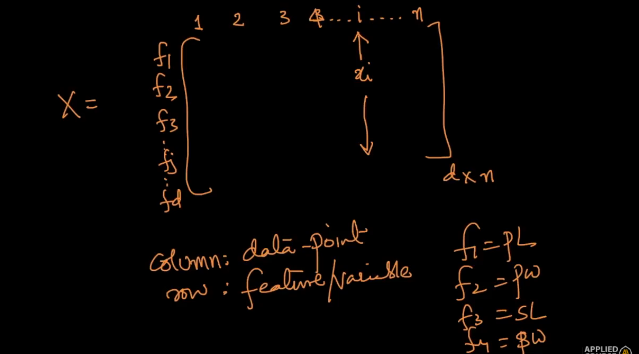 1 2 3 4 ... i .... n
f1
f2
xi
X =
f3
fj
fd
d x n
column: data-point
row: feature/variable
f1 = PL
f2 = PW
f3 = SL
f4 = SW
APPLIED